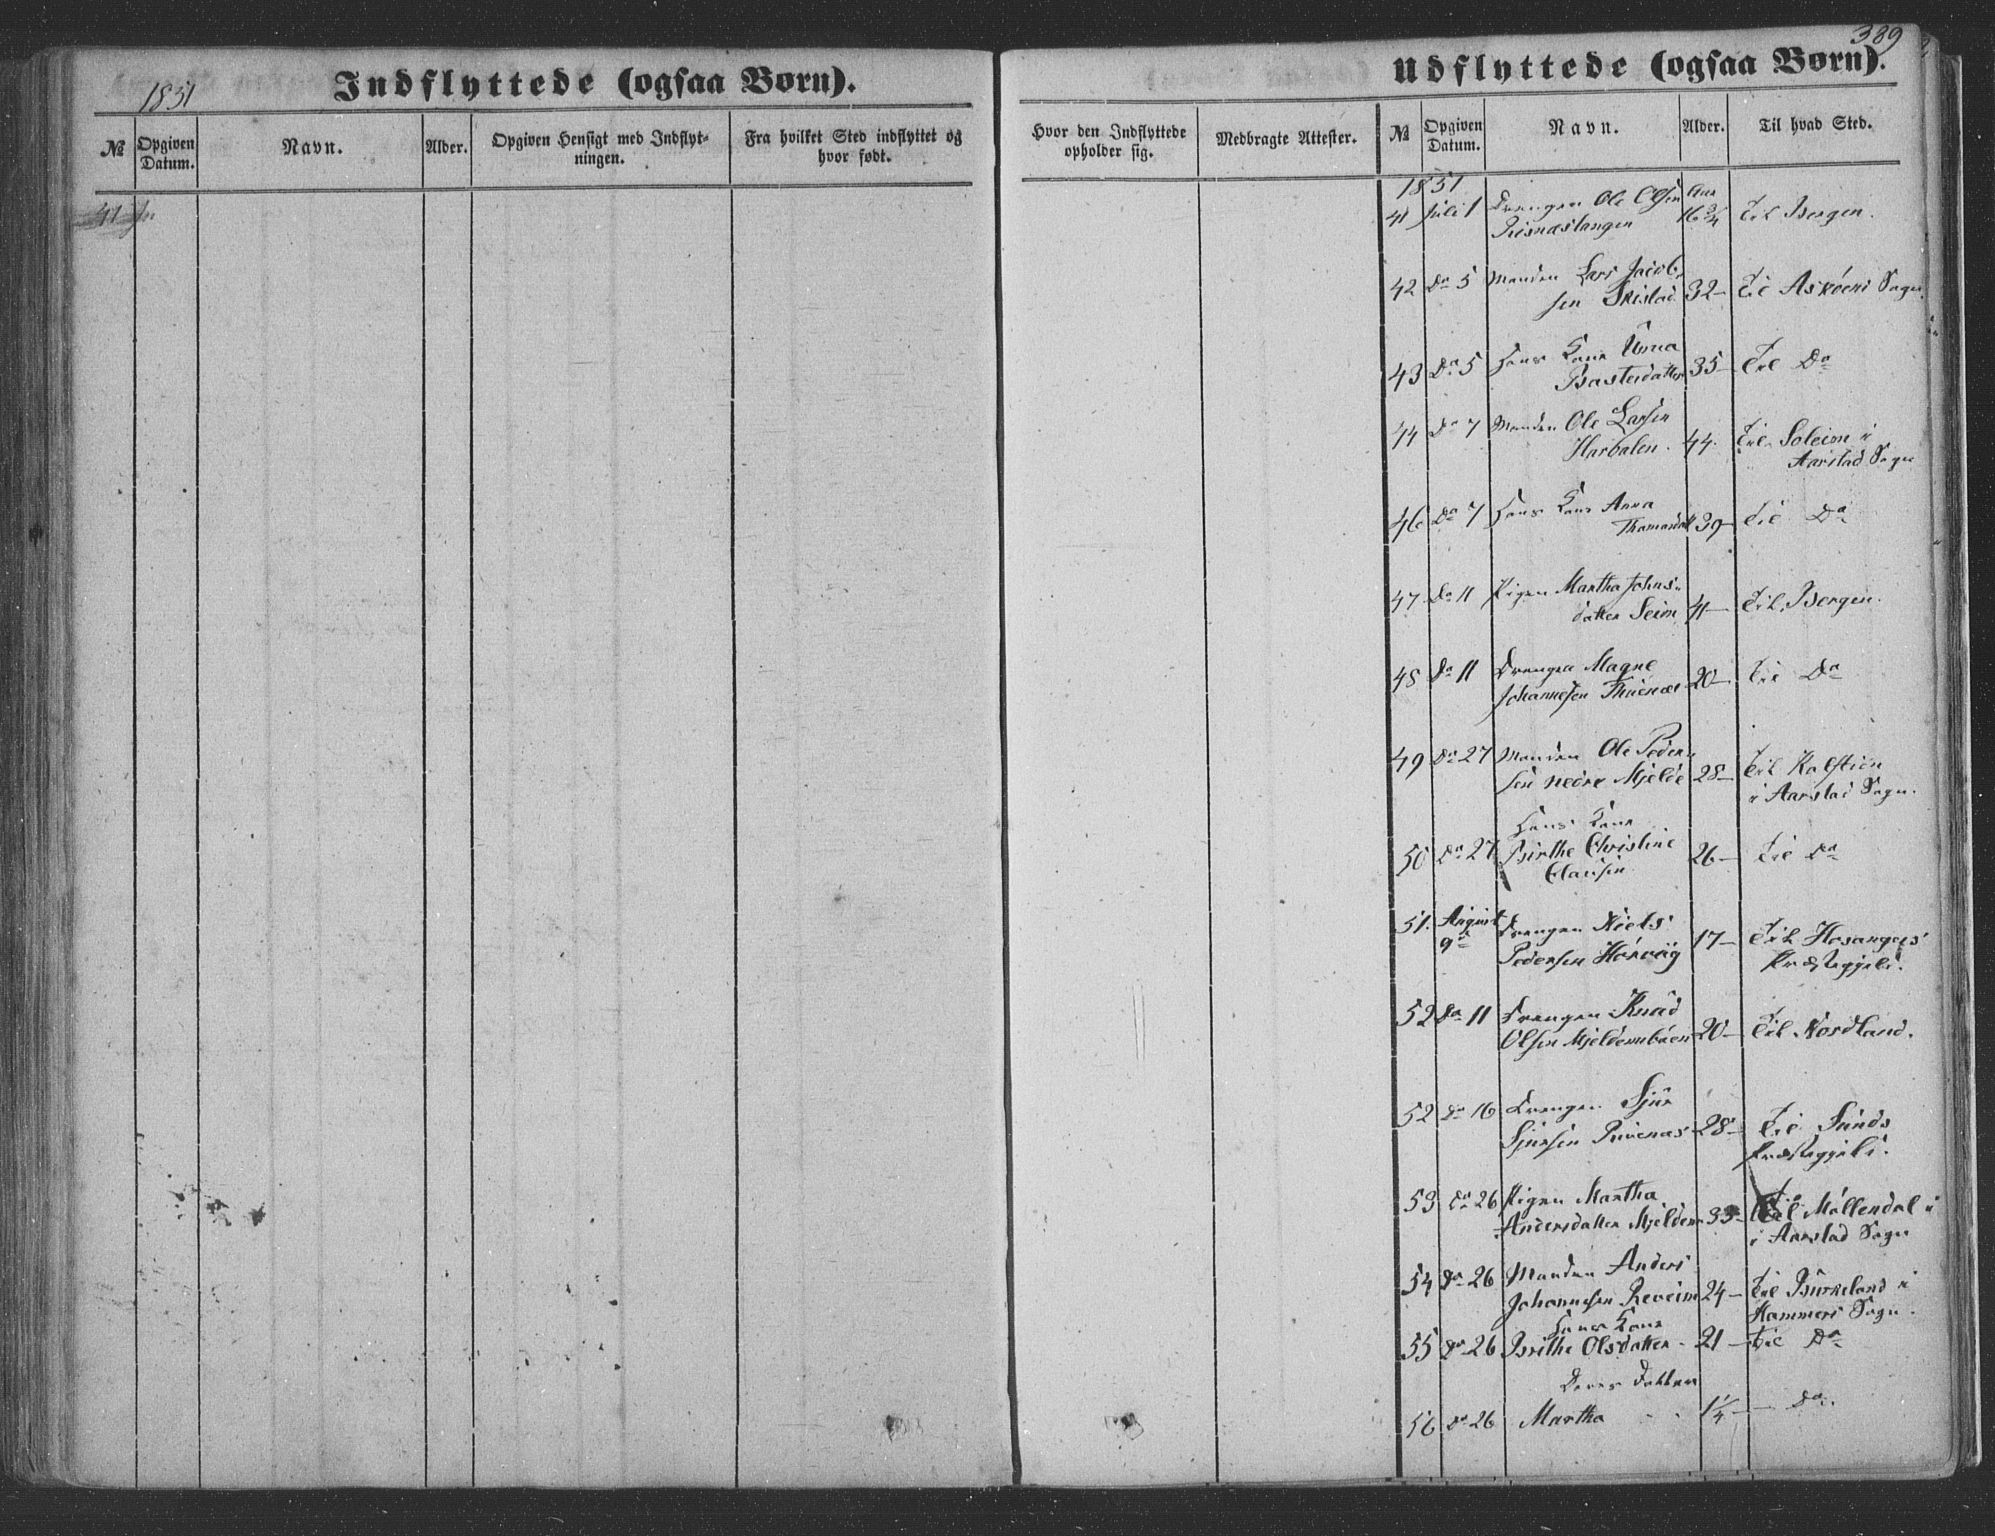 1851
Indflyttede (ogsaa Børn).
№
Opgiven Datum.
Navn.
Alder.
Opgiven Hensigt med Indflyt-
ningen.
Fra hvilket Sted indflyttet og
hvor født.
41
389
Udflyttede (ogsaa Børn).
Hvor den Indflyttede
opholder sig.
Medbragte Attester.
№
Opgiven Datum.
Navn.
Alder.
Til hvad Sted.
1851
41 Juli 1 Drengen Ole Olsen Aar 16 3/4 Til Bergen.
Risnæstangen
42 Do 5 Manden Lars Jacob-
sen Skistad 32- Til Askøens Sogn
43 Do 5 Hans Kone Anna
Bastesdatter 35- Til Do
44 Do 7 Manden Ole Larsen
Harbalen. 44. Til Soleim i
Aarstad Sogn
46 Do 7 Hans Kone Anna
Thomasdatt 39- Til Do
47. Do 11 Pigen Martha Johns-
datter Seim 41- Til Bergen.
48 Do 11 Drengen Magne
Johannesen Thuenæs 20- Til Do
49 Do 27 Manden Ole Peder-
sen nedre Mjelde 28- Til Kalfarien
i Aarstad Sogn.
Hans Kone
50 Do 27 Birthe Christine 26- Til Do
Clausen
51. August 9de Drengen Niels
Pedersen Hørvig 17- Til Hosangers
Præstegjeld.
52 Do 11 Drengen Knud
Olsen Mjeldemboen 20- Til Nordland.
52 Do 16 Drengen Sjur
Sjursen Ruvenæs 28- Til Sunds
Præstegjeld.
53 Do 26 Pigen Martha
Andersdatter Mjeldem 33- Til Møllendal i
i Aarstad Sogn
54 Do 26 Manden Anders
Johannesen Reveim 24- Til Burkeland i
Hammers Sogn.
Hans Kone
55 Do 26 Brithe Olsdatter - 21- Til Do
Deres Datter
56 Do 26 Martha 1 1/4 - Do.